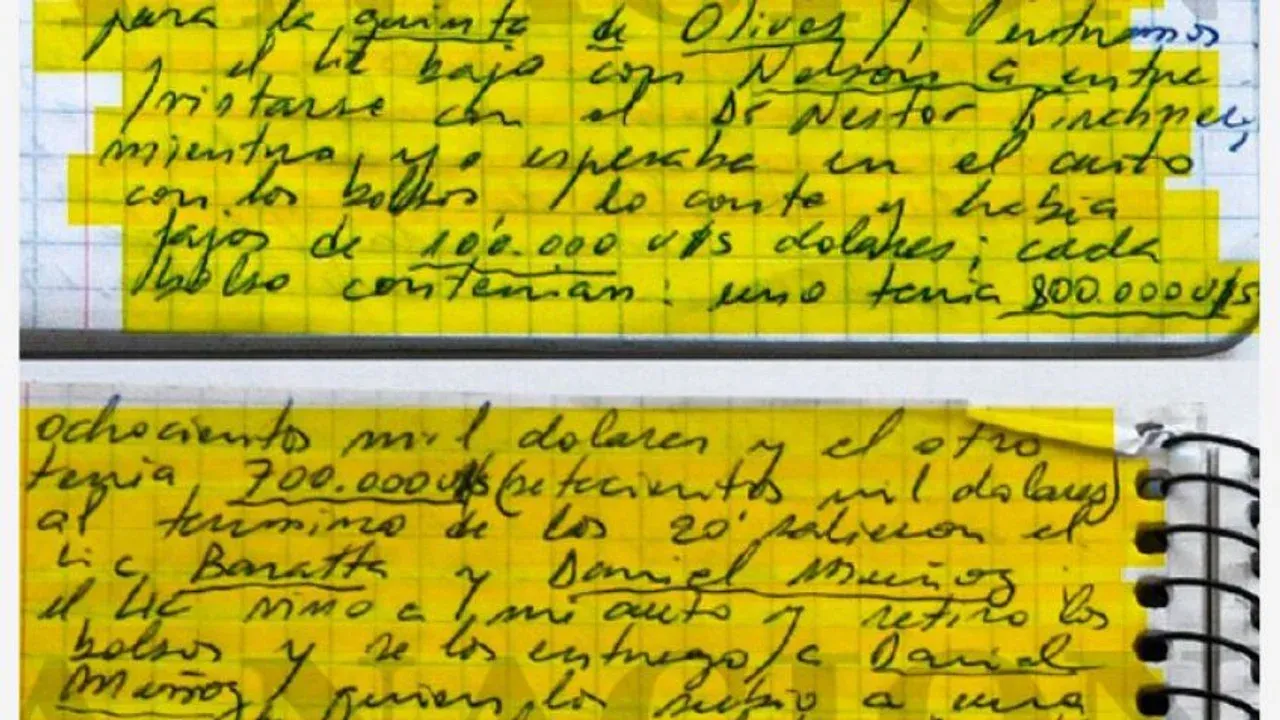 para la quinta de Olivos/; entramos
y el Lic bajo con Nelson a entre
/vistarse con el Dr Nestor Kirchner,
mientras, yo esperaba en el auto
con los bolsos, / lo conte y habia
fajos de 100.000 u$s dolares; cada
bolso contenian: uno tenia 800.000 u$s
ochocientos mil dolares y el otro
tenia, 700.000 u$s (setecientos mil dolares)
al termino de los 20' salieron el
Lic Baratta y Daniel Muñoz.
el Lic vino a / mi auto y retiro los
bolsos y se los entrego / a Daniel
Muñoz / quien los subio a una